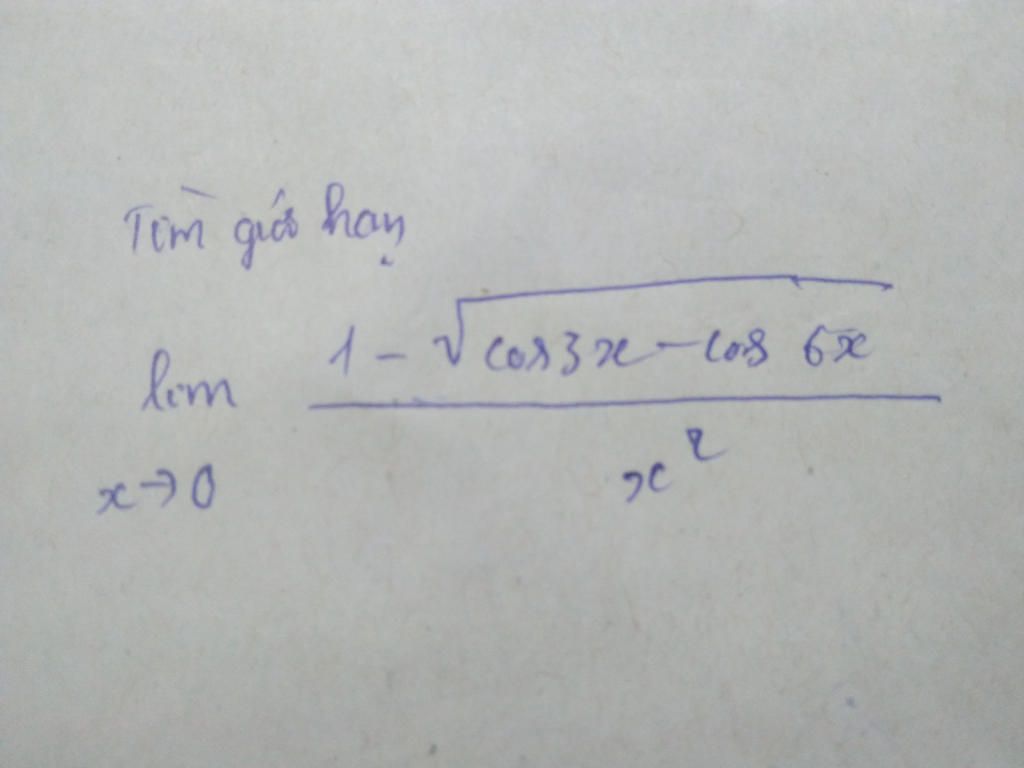 Tìm giới hạn
lim 1 - √cos3x - cos 6x
x→0 x²